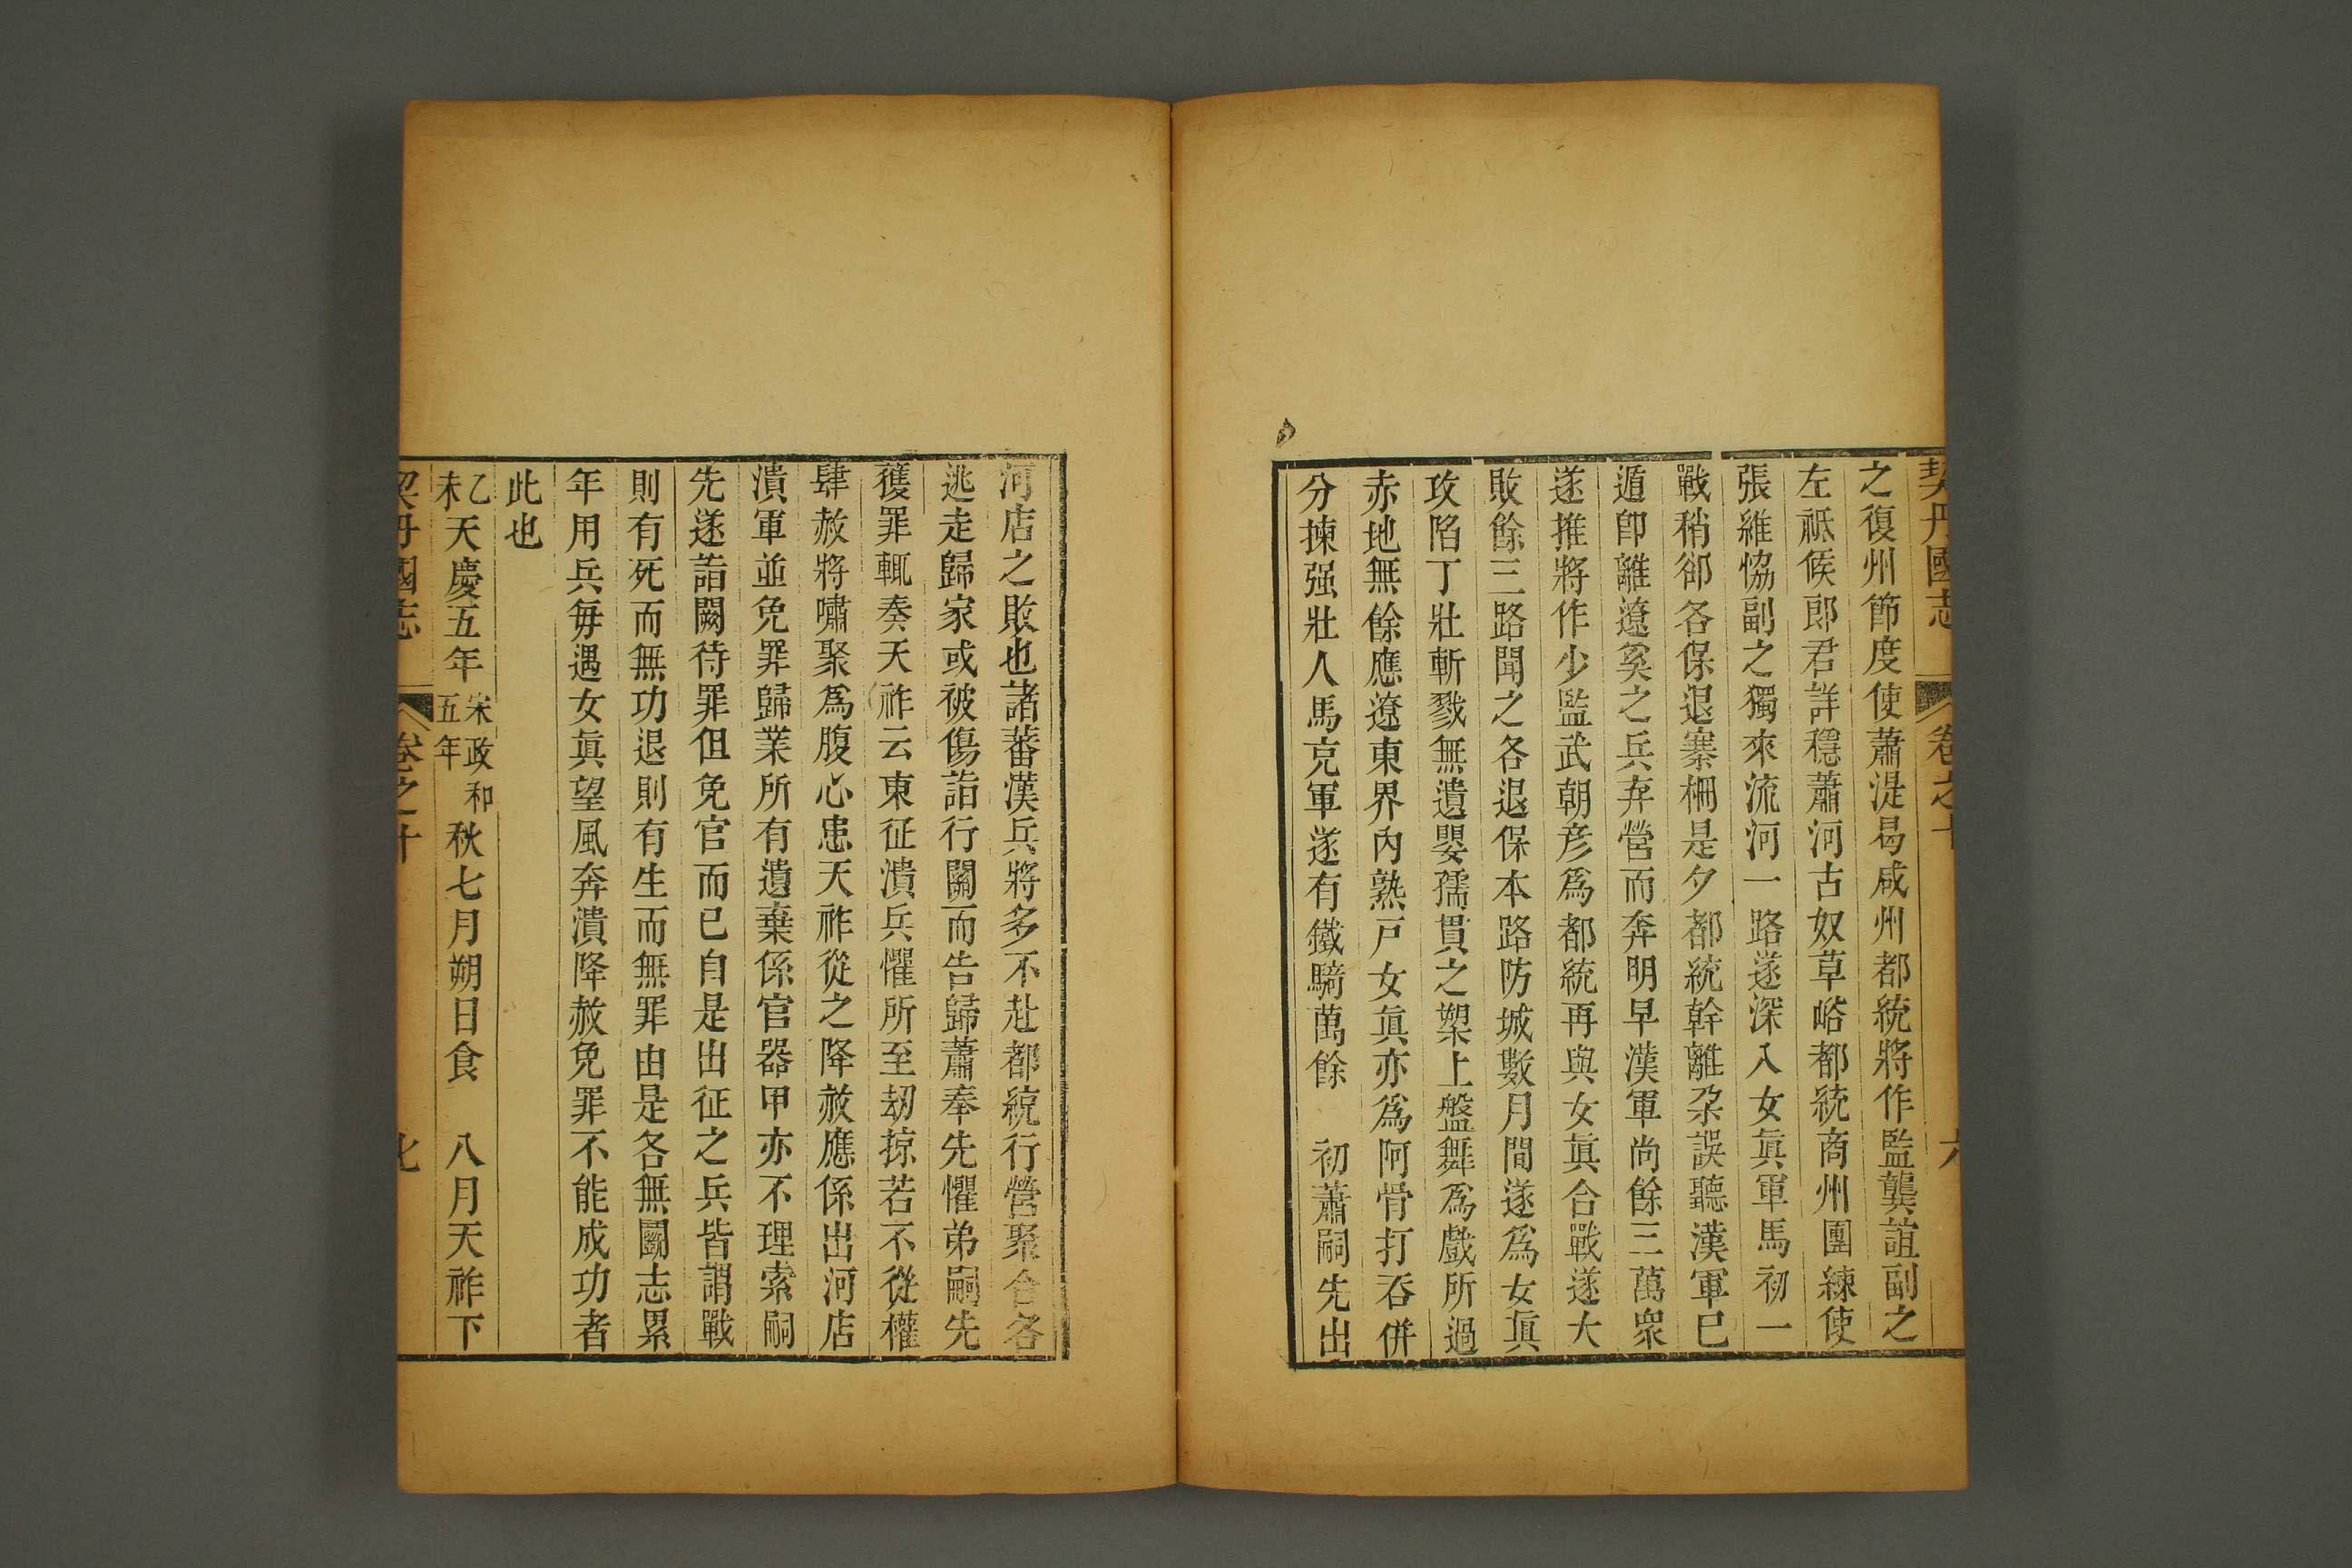 契丹國志 卷之十 六
之復州節度使蕭湜曷咸州都統將作監龔誼副之
左祗候郎君詳穩蕭河古奴草峪都統商州團練使
張維恊副之獨來流河一路遂深入女眞軍馬初一
戰稍郤各保退寨柵是夕都統幹離朶誤聽漢軍已
遁卽離遼奚之兵弃營而奔明早漢軍尚餘三萬衆
遂推將作少監武朝彦爲都統再與女眞合戰遂大
敗餘三路聞之各退保本路防城數月間遂爲女眞
攻陷丁壯斬戮無遺嬰孺貫之槊上盤舞爲戲所過
赤地無餘應遼東界內熟戸女眞亦爲阿骨打呑併
分揀强壯人馬充軍遂有鐵騎萬餘　初蕭嗣先出
河店之敗也諸蕃漢兵將多不赴都統行營聚合各
逃走歸家或被傷詣行闕而告歸蕭奉先懼弟嗣先
獲罪輒奏天祚云東征潰兵懼所至刼掠若不從權
肆赦將嘯聚爲腹心患天祚從之降赦應係出河店
潰軍並免罪歸業所有遺棄係官器甲亦不理索嗣
先遂詣闕待罪但免官而已自是出征之兵皆謂戰
則有死而無功退則有生而無罪由是各無鬬志累
年用兵毎遇女眞望風奔潰降赦免罪不能成功者
此也
乙未天慶五年宋政和五年秋七月朔日食　八月天祚下
契丹國志 卷之十